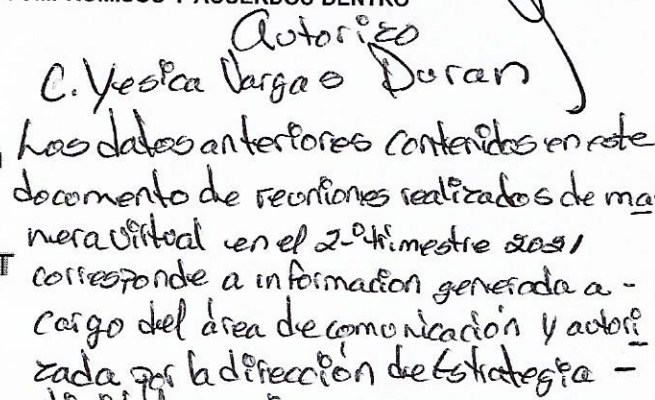 COMPROMISOS Y ACUERDOS DENTRO
Autorizo
C. Yesica Vargas Duran
Los datos anteriores contenidos en este
documento de reuniones realizados de ma-
nera virtual en el 2-° trimestre 2021
T
corresponde a informacion generada a -
cargo del área de comunicación y autori
zada por la dirección de Estrategia -